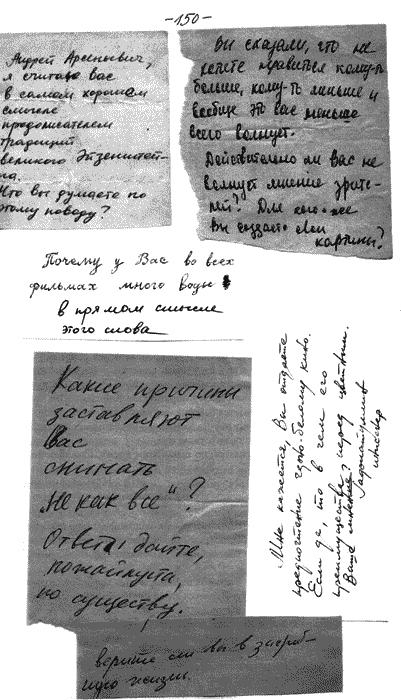 -150-
Андрей Арсеньевич,
я считаю вас
в самом хорошем
смысле
продолжателем
традиций
великого Эйзенштей-
на.
Что вы думаете по
этому поводу?
Вы сказали, что не
хотите нравиться кому-то
больше, кому-то меньше и
вообще это вас меньше
всего волнует.
Действительно ли вас не
волнует мнение зрите-
лей? Для кого же
Вы создаете свои
картины?
Почему у Вас во всех
фильмах много воды
в прямом смысле
этого слова
Мне кажется, Вы отдаете
предпочтение черно-белому кино.
Если да, то в чем его
преимущества перед цветным.
Ваше мнение?
инженер
Какие причины
заставляют
Вас
снимать
„не как все"?
Ответ дайте,
пожалуйста,
по существу.
верите ли вы в загроб-
ную жизнь.